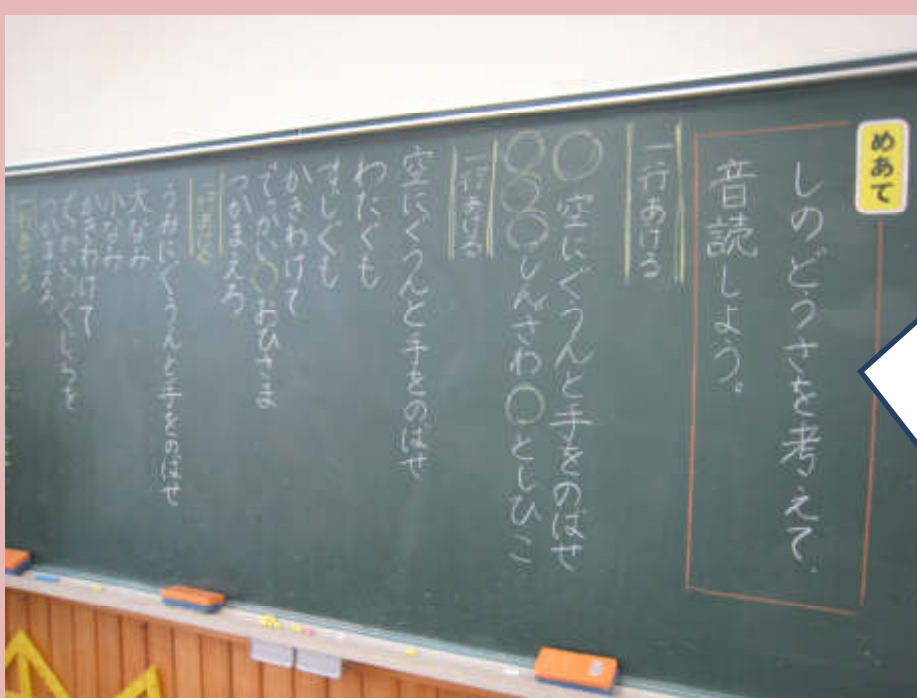 めあて
しのどうさを考えて、
音読しよう。
一行あける
○空にぐうんと手をのばせ
○○○しんざわ○としひこ
一行あける
空にぐうんと手をのばせ
わたぐも
すじぐも
かきわけて
でっかい○おひさま
つかまえろ
一行あける
うみにぐうんと手をのばせ
大なみ
小なみ
かきわけて
でっかい○くじらを
つかまえろ
一行あける